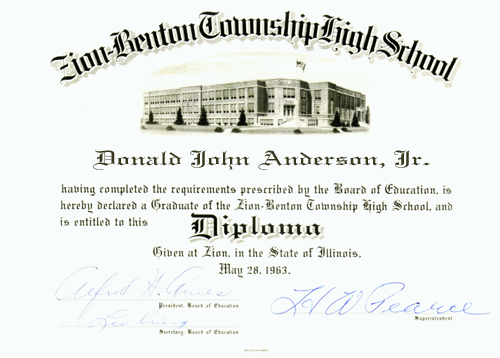 Zion-Benton Township High School
Donald John Anderson, Jr.
having completed the requirements prescribed by the Board of Education, is
hereby declared a Graduate of the Zion-Benton Township High School, and
is entitled to this Diploma
Given at Zion, in the State of Illinois,
May 28, 1963.
Alfred H.
President, Board of Education
H W Pearce
Superintendent
Secretary, Board of Education